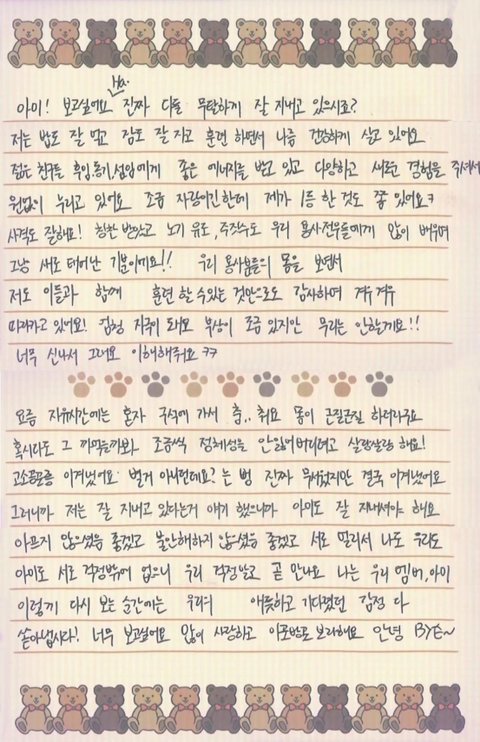 아이! 보고싶어요 ㅎㅎ. 진짜 다들 무탈하게 잘 지내고 있으시죠?
저는 밥도 잘 먹고 잠도 잘 자고 훈련 하면서 나름 건강하게 살고 있어요
젊은 친구들 훈임,동기,선임에게 좋은 에너지를 받고 있고 다양하고 새로운 경험을 주셔서
원없이 누리고 있어요 조금 자랑이긴한데 제가 1등 한 것도 쫌 있어요ㅋ
사격도 잘해요! 칭찬 받았고 노기 유도, 주짓수도 우리 용사전우들에게 많이 배우며
그냥 새로 태어난 기분이에요!! 우리 용사분들의 몸을 보면서
저도 이들과 함께 훈련 할 수 있는 것만으로도 감사하며 겨우 겨우
따라가고 있어요! 검정 지쿠이 돼요 부상이 조금 있지만 무리는 안할게요!!
너무 신나서 그래요 이해해줘요 ㅋㅋ
요즘 자유시간에는 혼자 구석에 가서 춤.. 춰요 몸이 근질근질 하더라구요
혹시라도 그 까먹을까봐 조금씩 정체성을 안잃어버리려고 살랑살랑 해요!
고소공포증 이겨냈어요 별거 아니던데요? 는 뻥 진짜 무서웠지만 결국 이겨냈어요
그러니까 저는 잘 지내고 있다는거 얘기 했으니까 아미도 잘 지내셔야 해요
아프지 않으셨음 좋겠고 불안해하지 않으셨음 좋겠고 서로 멀리서 나도 우리도
아미도 서로 걱정밖에 없으니 우리 걱정말고 곧 만나요 나는 우리 멤버,아미
이렇게 다시 보는 순간에는 우리의 애틋하고 기다렸던 감정 다
쏟아냅시다! 너무 보고싶어요 많이 사랑하고 이곳방로 보라해요 안녕 뿅~